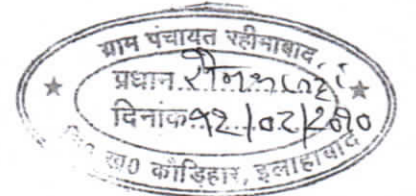 ग्राम पंचायत रहीमाबाद,
प्रधान
दिनांक १२/०८/२०१०
वि० ख० कौड़िहार, इलाहाबाद